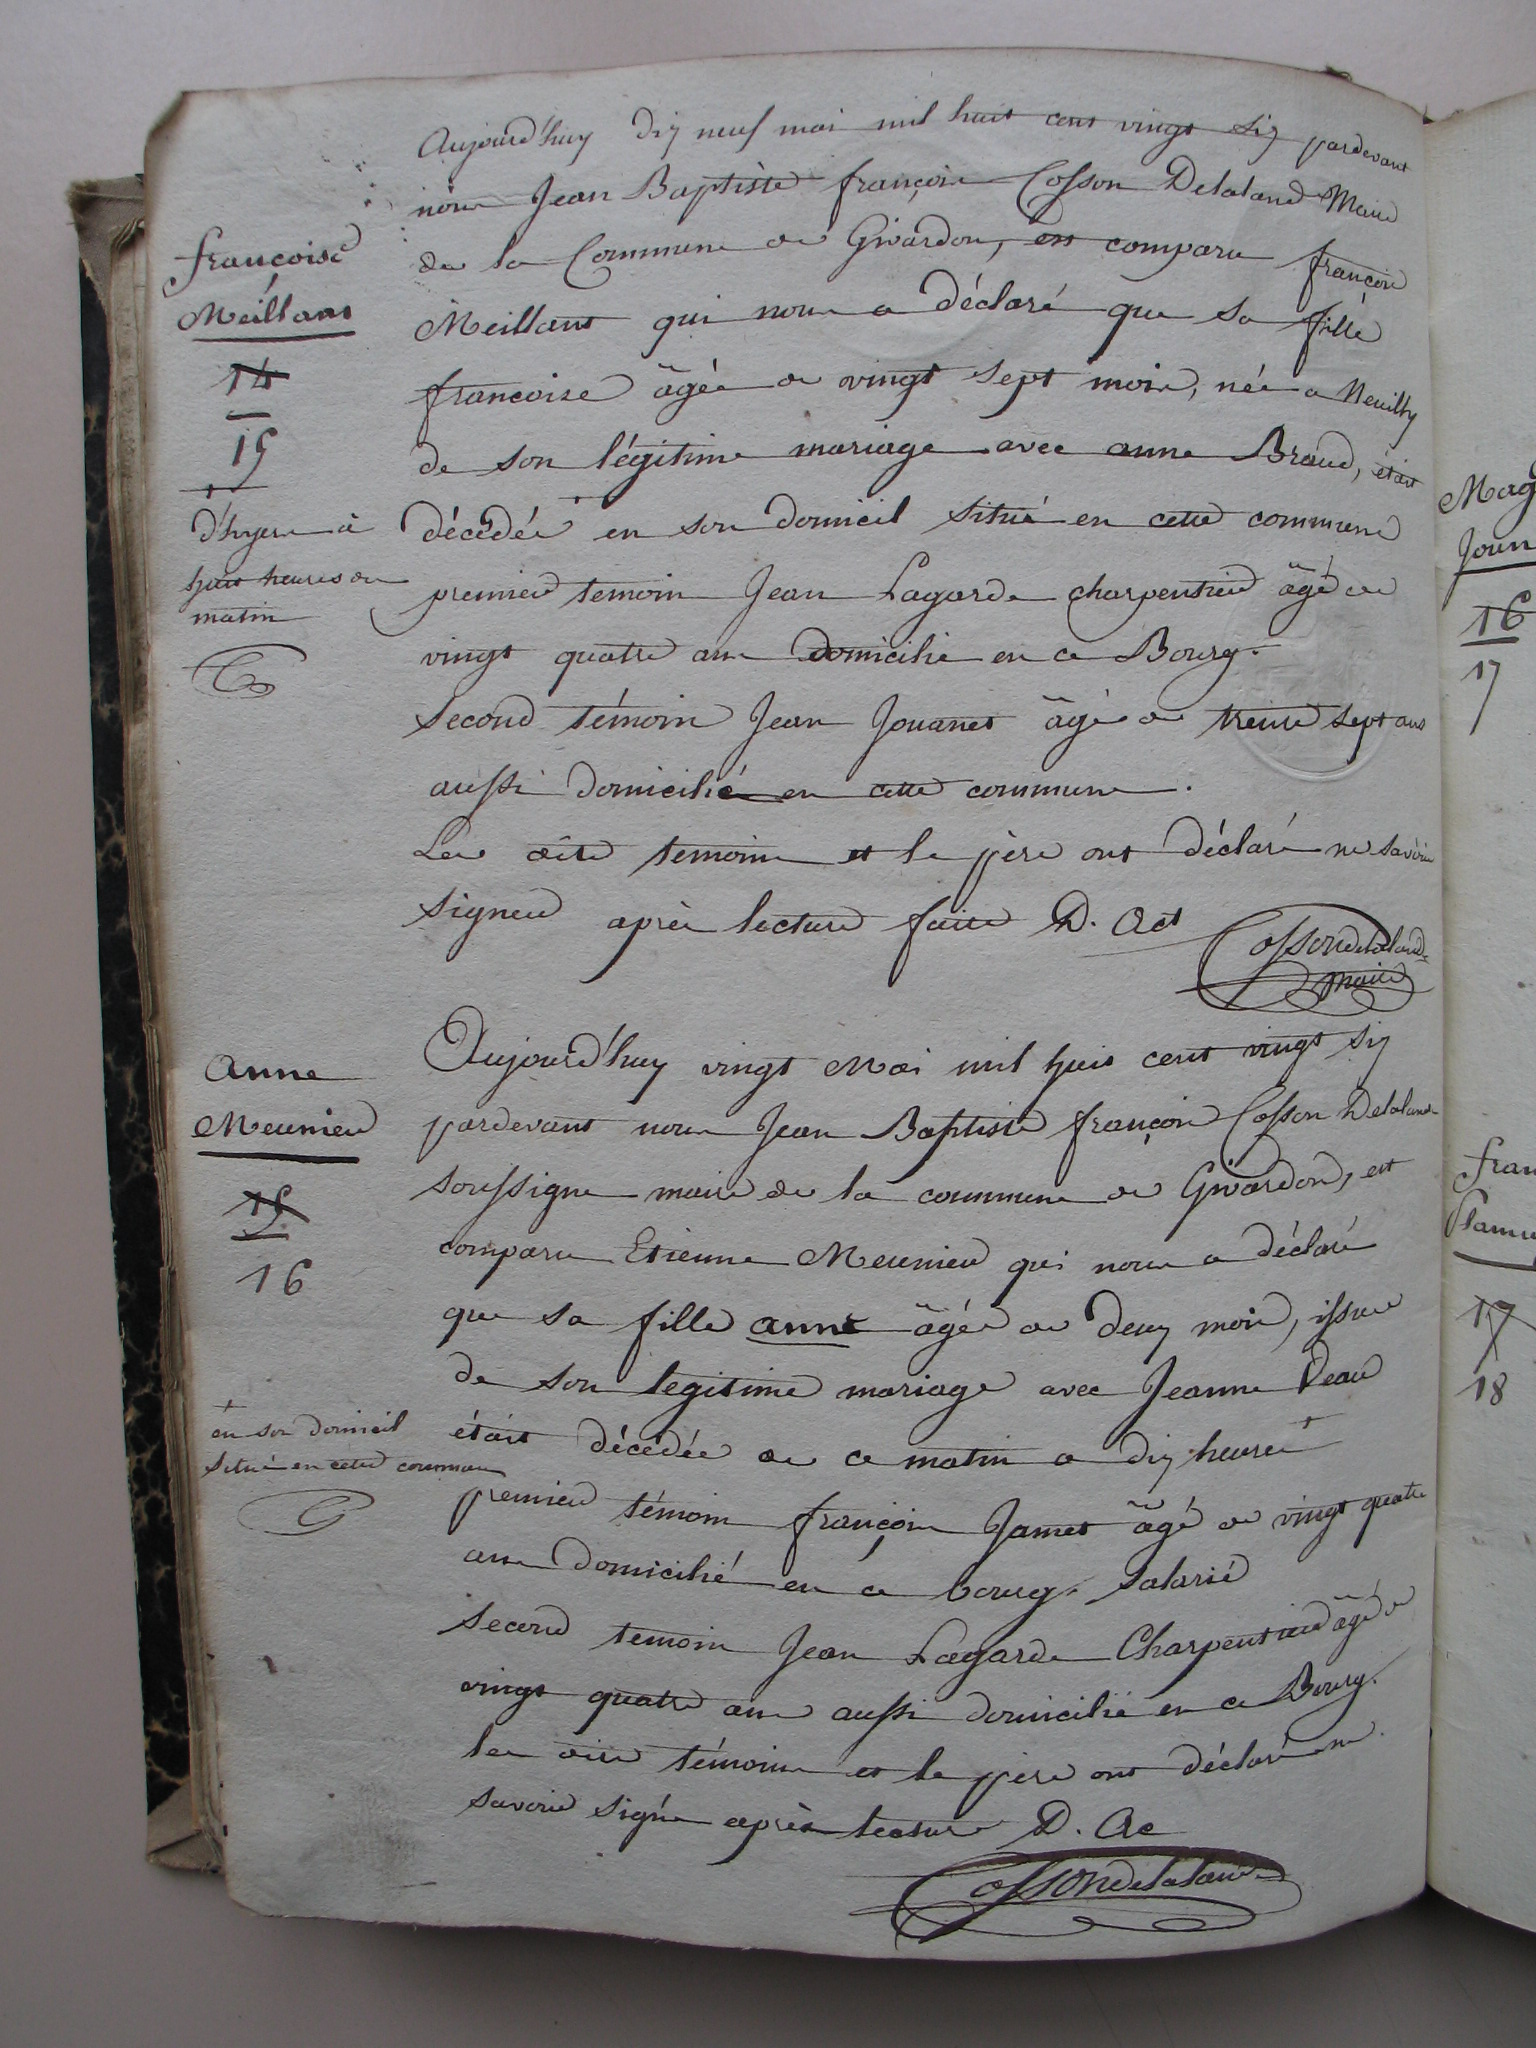 françoise
Meillant
14
15
d'hyer à
huit heures du
matin
Aujourd'huy dix neuf mai mil huit cent vingt six pardevant
nous Jean Baptiste françois Cosson Delalande Maire
de la Commune de Givardon, est comparu françois
Meillant qui nous a déclaré que sa fille
francoise âgée de vingt sept mois, née a Neuilly
de son légitime mariage avec anne Braud, était
décédée en son domicil situé en cette commune
premier temoin Jean Lagarde charpentier âgé de
vingt quatre ans domicilié en ce Bourg.
Second témoin Jean Jouanet âgé de trente sept ans
aussi domicilié en cette commune.
Les dits temoins et le père ont déclaré ne savoir
signer après lecture faite D. Act
Cossondelalande
maire
anne
Meunier
15
16
en son domicil
situé en cette commune
Aujourd'huy vingt Mai mil huit cent vingt six
pardevant nous Jean Baptiste françois Cosson Delalande
soussigne maire de la commune de Givardon, est
comparu Etienne Meunier qui nous a déclaré
que sa fille anne âgée de deux mois, issue
de son legitime mariage avec Jeanne Deau
était décédée de ce matin a dix heures
premier témoin françois Jamet âgé de vingt quatre
ans domicilié en ce bourg. Salarié
Second temoin Jean Lagarde Charpentier âgé de
vingt quatre ans aussi domicilié en ce Bourg.
les dits témoins et le père ont déclaré ne
savoir signé après lecture D. Ac
Cossondelalande
16
17
17
18